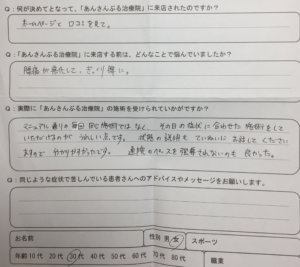 Q：何が決めてとなって、「あんさんぶる治療院」に来店されたのですか？
ホームページと 口コミを見て。
Q：「あんさんぶる治療院」に来店する前は、どんなことで悩んでいましたか？
腰痛が悪化して、ぎっくり腰に。
Q：実際に「あんさんぶる治療院」の施術を受けられていかがですか？
マニュアル通りの毎回同じ施術ではなく、その日の症状に合わせた施術をして
いただけるのが うれしい点です。 状態の説明も ていねいに お話して ください
ますので 分かりやすかったです。 通院のペースを強要されないのも 良かった。
Q：同じような症状で苦しんでいる患者さんへのアドバイスやメッセージをお願いします。
お名前
性別 男 女
スポーツ
年齢 10代 20代 30代 40代 50代 60代 70代 80代
職業